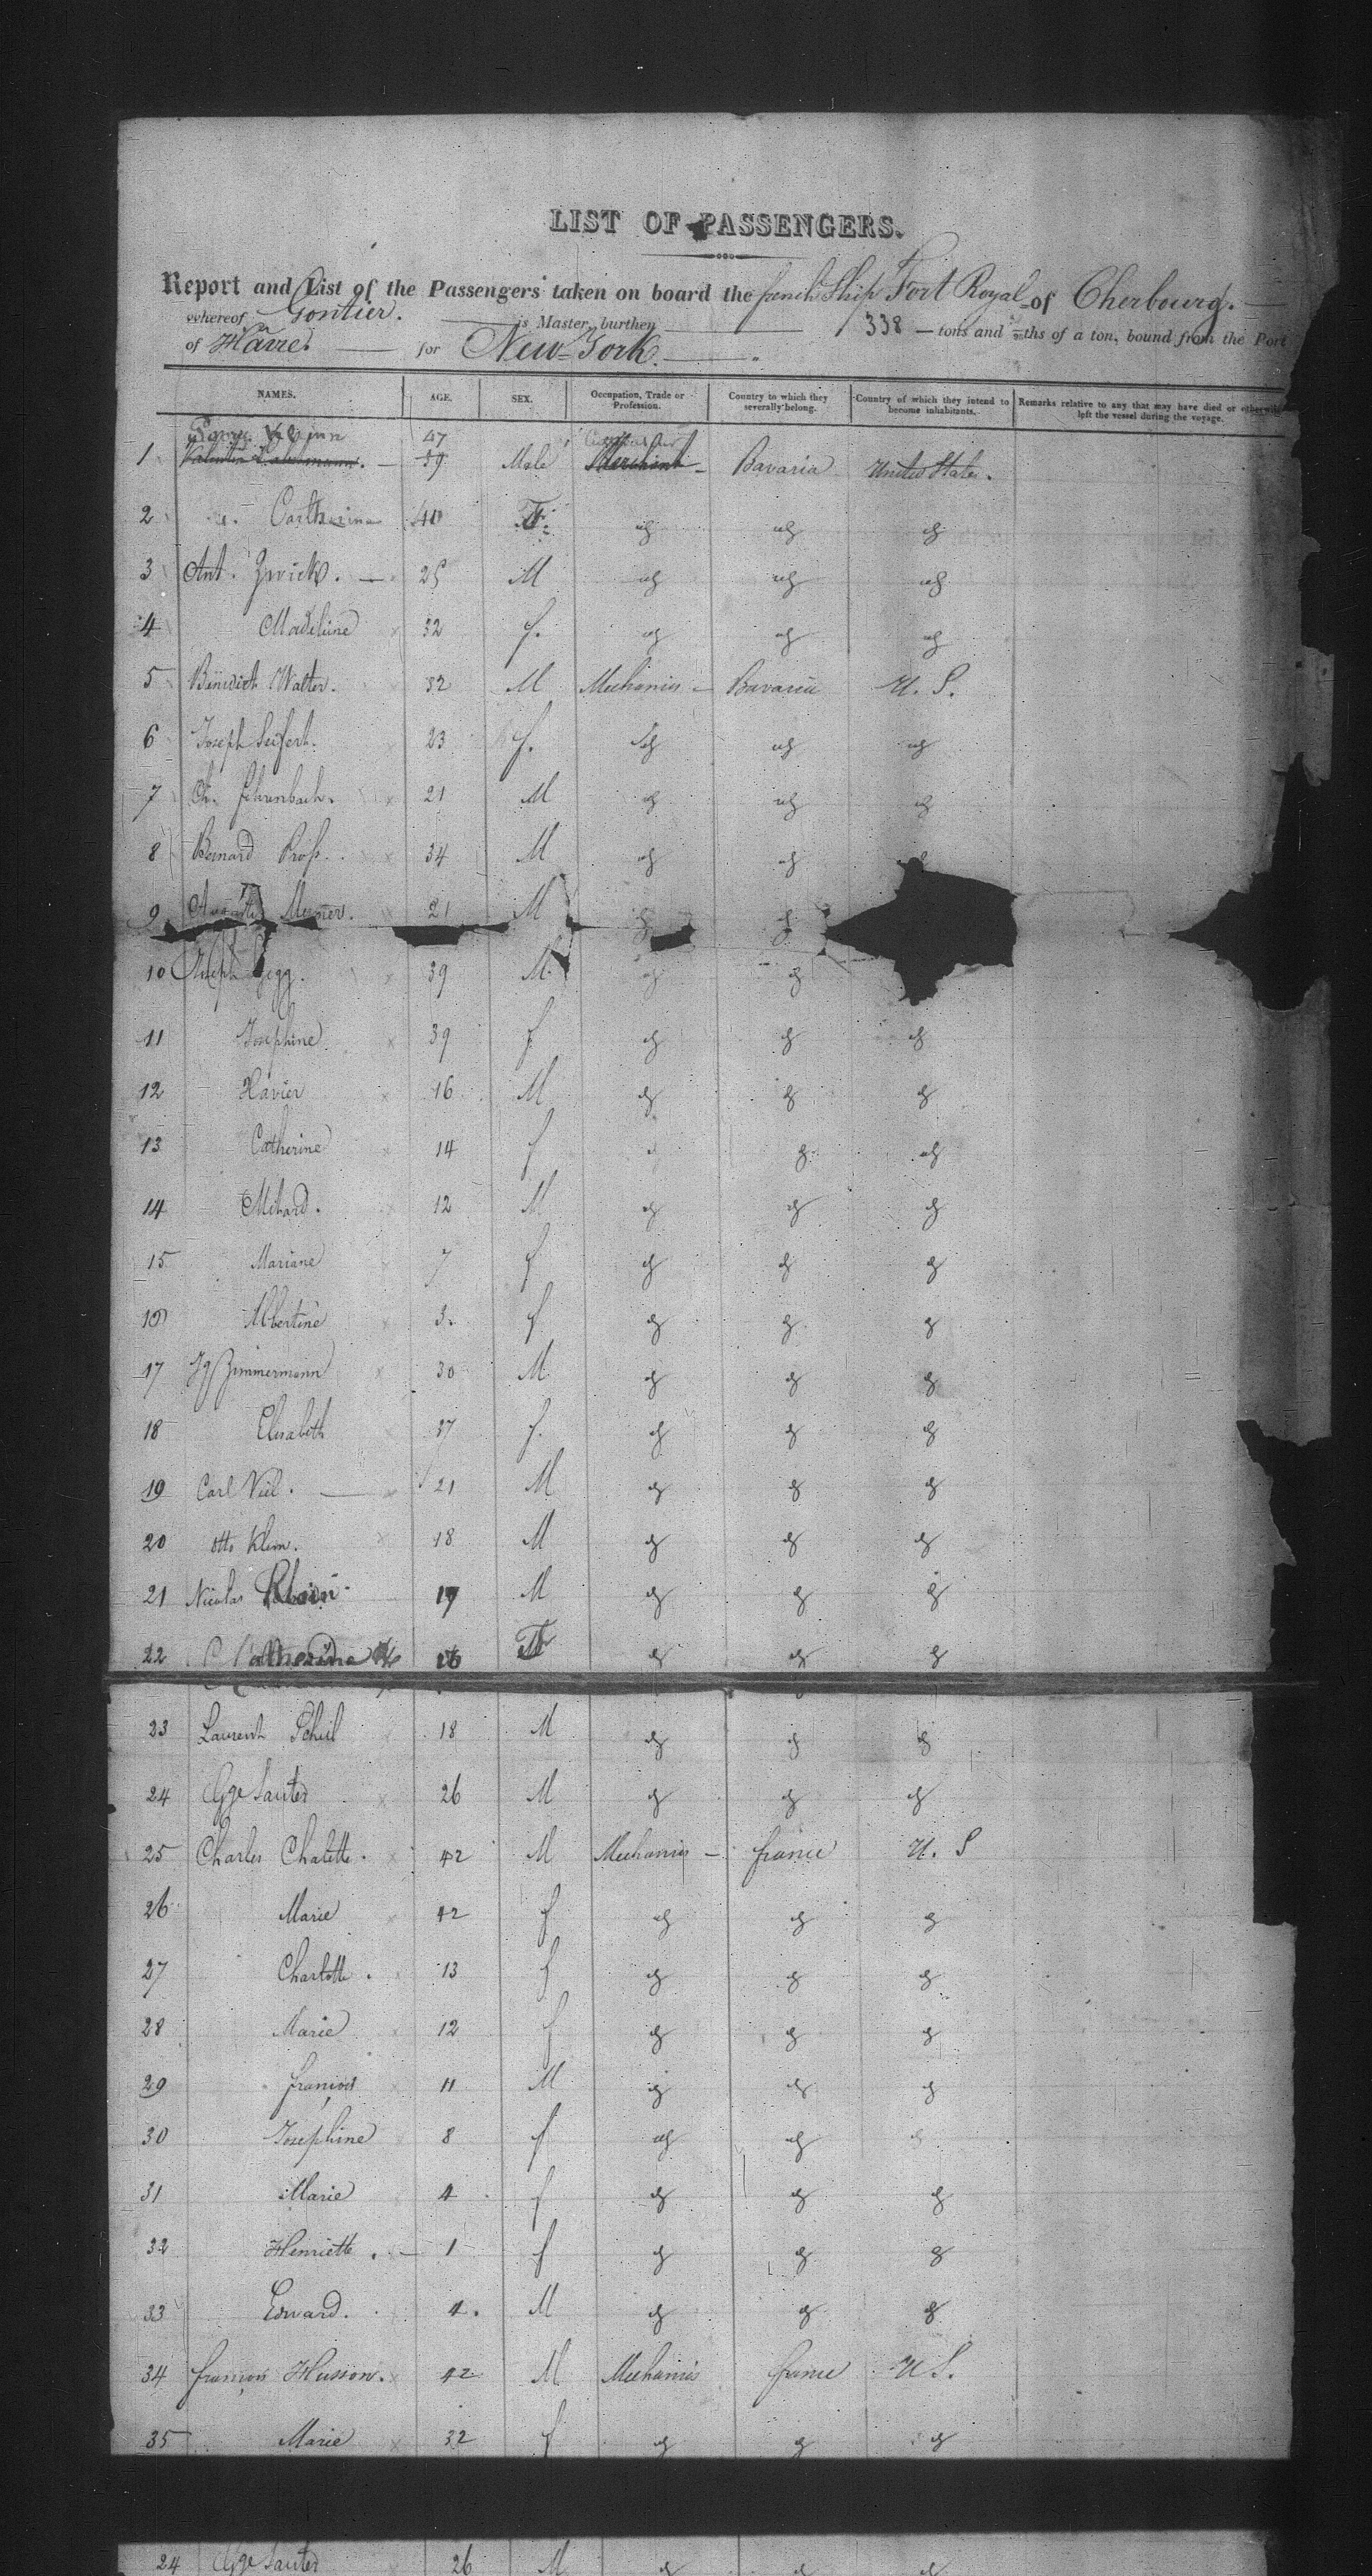 LIST OF PASSENGERS.
Report and List of the Passengers taken on board the french Ship Fort Royal of Cherbourg.
whereof Gontier. is Master, burthen 338 tons and ths of a ton, bound from the Port
of Havre. for New-York.
NAMES. AGE. SEX. Occupation, Trade or Profession. Country to which they severally belong. Country of which they intend to become inhabitants. Remarks relative to any that may have died or otherwise left the vessel during the voyage.
47
1 59 Male Merchant Bavaria United States.
2 Catherina 40 F.
3 Ant. Zwick. 25 M
4 Madeleine 32 f.
5 Benedict Walter. 32 M Mechanics Bavaria U. S.
6 Joseph Seifert. 23 f.
7 Ch. fehrenbach. 21 M
8 Bernard 34 M
9 21 M
10 Joseph 39 M.
11 Josephine 39 f
12 Havier 16 M
13 Catherine 14 f
14 12 M
15 Mariane 7 f
16 Albertine 3. f
17 Jg Zimmermann 30 M
18 Elisabeth 37 f.
19 Carl Veil. 21 M
20 otto Klem. 18 M
21 Nicolas 19 M
22 Catherina 16
23 Laurent Scheil 18 M
24 Gge Sauter 26 M
25 Charles Chalette. 42 M Mechanics france U. S
26 Marie 42 f
27 Charlotte. 13 f
28 Marie 12 f
29 françois 11 M
30 Josephine 8 f
31 Marie 4 f
32 Henriette. 1 f
33 Edward. 4. M
34 françois Husson. 42 M Mechanics france U S.
35 Marie 32 f
24 Gge Sauter 26 M